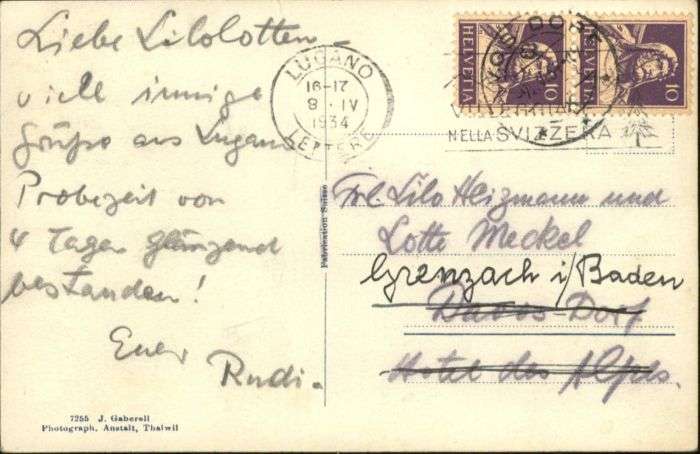 Liebe Lilolotten –
viele innige
Grüße aus Lugano
Probezeit von
4 Tagen glänzend
bestanden!
Euer
Rudi.
7255 J. Gaberell
Photograph. Anstalt, Thalwil
Fabrication Suisse
LUGANO
16-17
8·IV
1934
LETTERE
HELVETIA
10
HELVETIA
10
DAVOS DORF
NELLA SVIZZERA
Frl. Lilo Heizmann und
Lotte Meckel
Grenzach i/Baden
Davos-Dorf
Hotel des Alpes.